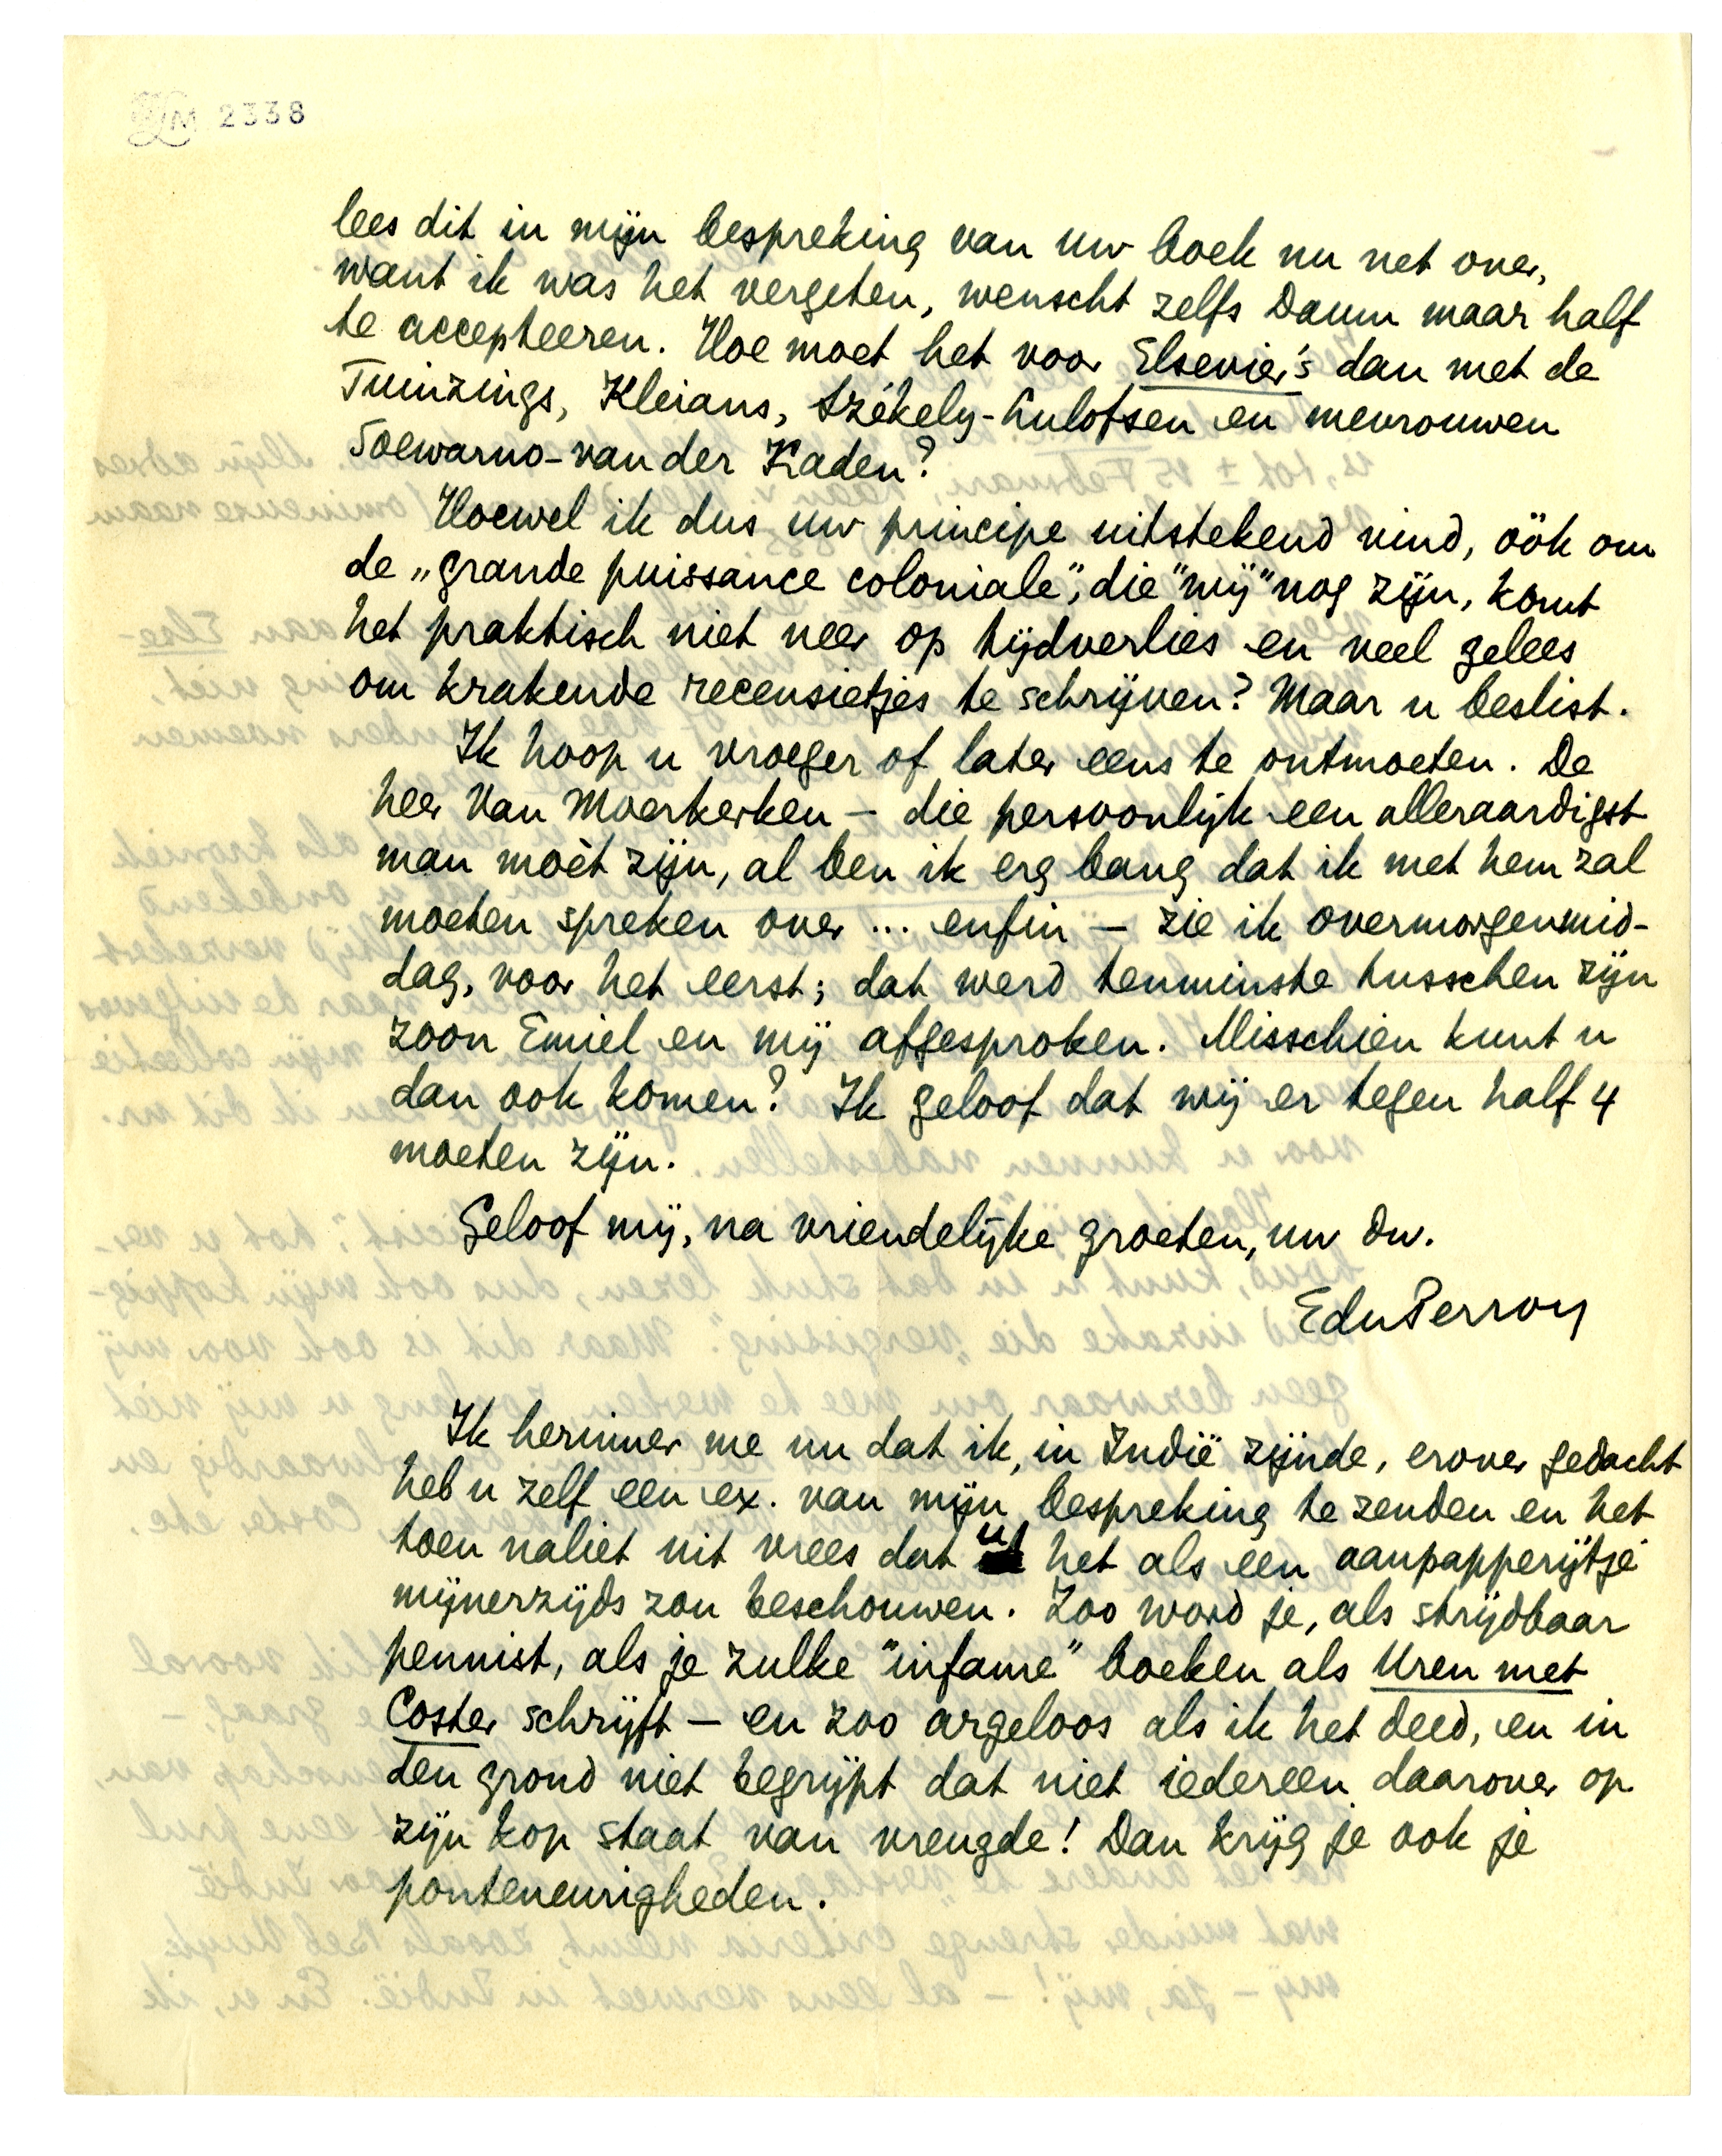 LM 2338
lees dit in mijn bespreking van uw boek nu net over,
want ik was het vergeten, wenscht zelfs Daum maar half
te accepteeren. Hoe moet het voor Elsevier's dan met de
Tuinzings, Kleians, Székely-Lulofsen en mevrouwen
Soewarno-van der Kaden?
Hoewel ik dus uw principe uitstekend vind, óók om
de „grande puissance coloniale”, die "wij" nog zijn, komt
het praktisch niet neer op tijdverlies en veel gelees
om krakende recensietjes te schrijven? Maar u beslist.
Ik hoop u vroeger of later eens te ontmoeten. De
heer Van Moerkerken – die persoonlijk een alleraardigst
man moèt zijn, al ben ik erg bang dat ik met hem zal
moeten spreken over ... enfin – zie ik overmorgenmid-
dag, voor het eerst; dat werd tenminste tusschen zijn
zoon Emiel en mij afgesproken. Misschien kunt u
dan ook komen? Ik geloof dat wij er tegen half 4
moeten zijn.
Geloof mij, na vriendelijke groeten, uw dw.
EduPerron
Ik herinner me nu dat ik, in Indië zijnde, erover gedacht
heb u zelf een ex. van mijn bespreking te zenden en het
toen naliet uit vrees dat u het als een aanpapperijtje
mijnerzijds zou beschouwen. Zoo word je, als strijdbaar
pennist, als je zulke "infame" boeken als Uren met
Coster schrijft – en zoo argeloos als ik het deed, en in
den grond niet begrijpt dat niet iedereen daarover op
zijn kop staat van vreugde! Dan krijg je ook je
ponteneurigheden.